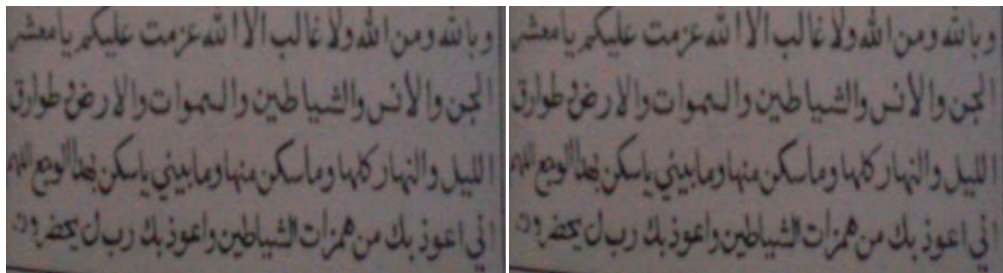 وبالله ومن الله ولا غالب الا الله عزمت عليكم يا معشر
الجن والانس والشياطين والسموات والارض وطوارق
الليل والنهار كلها وما سكن منها وما بيني يا سكن بهذا الوجع اللهم
اني اعوذ بك من همزات الشياطين واعوذ بك رب ان يحضرون
وبالله ومن الله ولا غالب الا الله عزمت عليكم يا معشر
الجن والانس والشياطين والسموات والارض وطوارق
الليل والنهار كلها وما سكن منها وما بيني يا سكن بهذا الوجع اللهم
اني اعوذ بك من همزات الشياطين واعوذ بك رب ان يحضرون